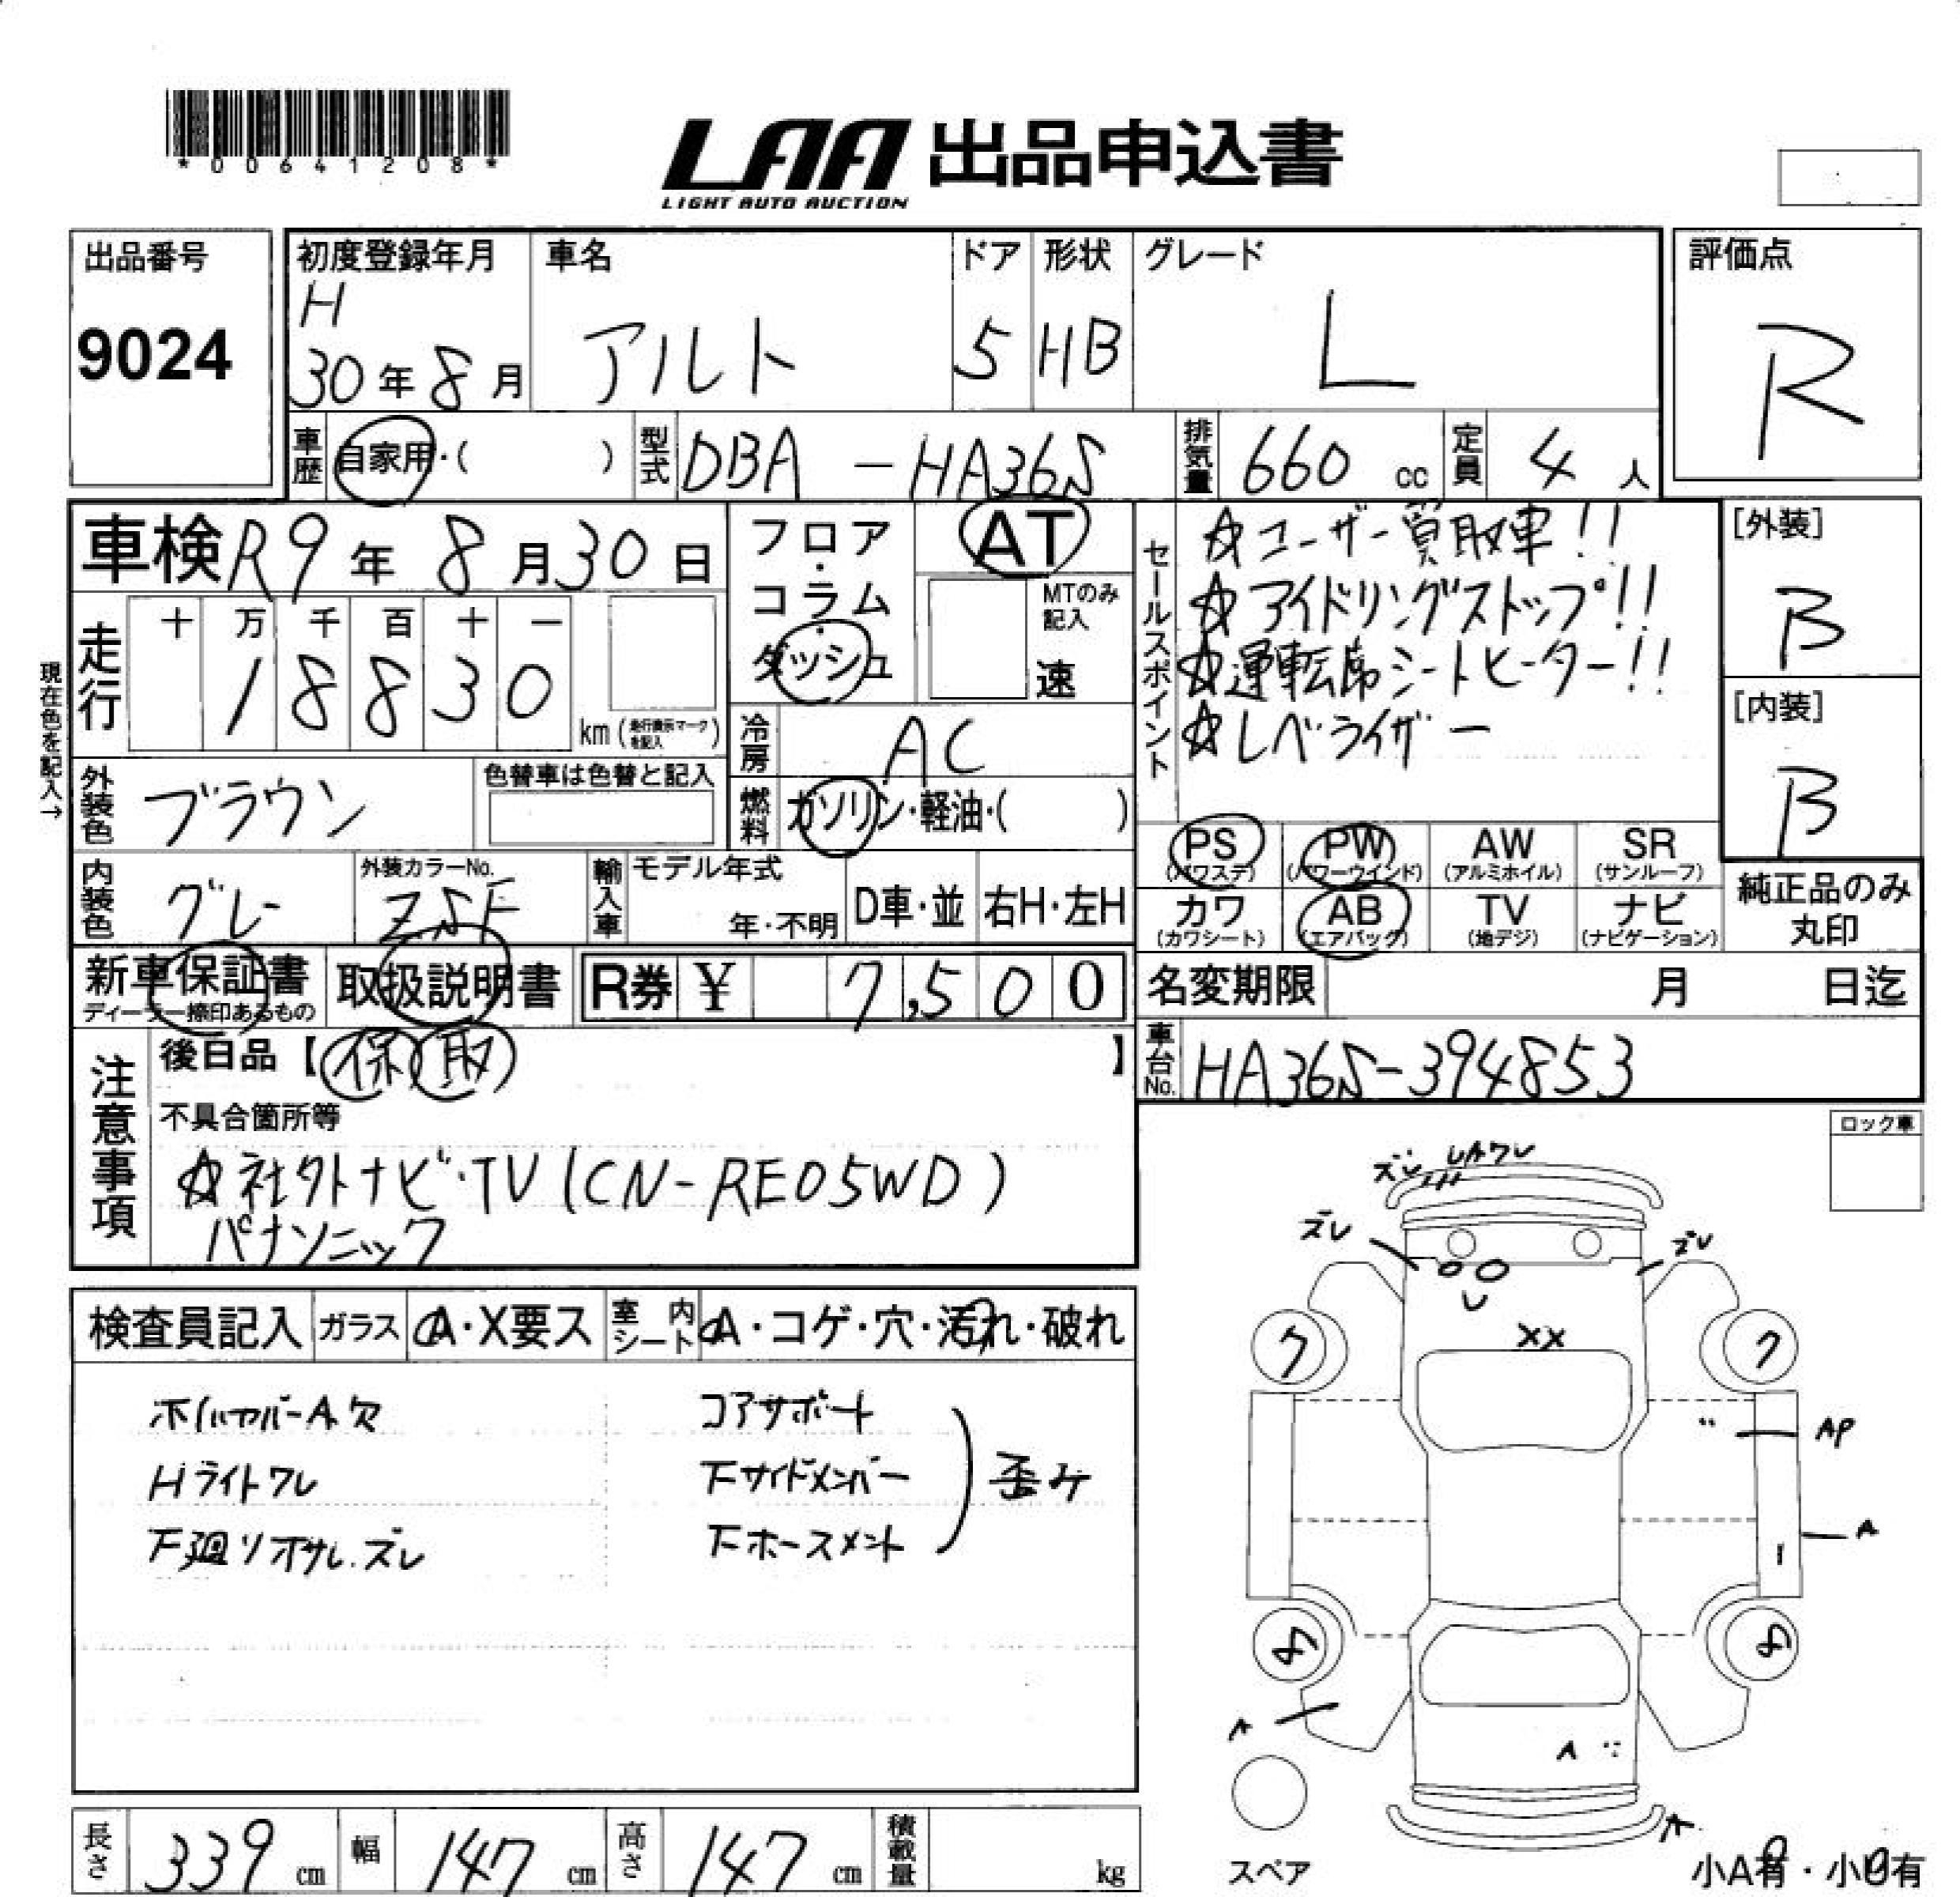 *00641208*
LAA 出品申込書
LIGHT AUTO AUCTION
出品番号
9024
初度登録年月
H
30年8月
車名
アルト
ドア
5
形状
HB
グレード
L
評価点
R
車歴 自家用・( )
型式 DBA-HA36S
排気量 660 cc
定員 4 人
車検 R9年8月30日
フロア・コラム・ダッシュ
AT
MTのみ記入
速
セールスポイント
☆ユーザー買取車!!
☆アイドリングストップ!!
☆運転席シートヒーター!!
☆レベライザー
[外装]
B
[内装]
B
現在色を記入→
走行
十 万 千 百 十 一
1 8 8 3 0
km(走行表示マークを記入)
冷房 AC
外装色 ブラウン
色替車は色替と記入
燃料 ガソリン・軽油・( )
PS (パワステ)
PW (パワーウインド)
AW (アルミホイル)
SR (サンルーフ)
カワ (カワシート)
AB (エアバック)
TV (地デジ)
ナビ (ナビゲーション)
純正品のみ丸印
内装色 グレー
外装カラーNo.
ZSF
輸入車
モデル年式
年・不明
D車・並
右H・左H
新車保証書
ディーラー捺印あるもの
取扱説明書
R券 ¥ 7,500
名変期限 月 日迄
車台No. HA36S-394853
注意事項
後日品【保 取 】
不具合箇所等
☆社外ナビ・TV(CN-RE05WD)
パナソニック
ロック車
検査員記入
ガラス A・X要ス
室内シート A・コゲ・穴・汚れ・破れ
Hライトワレ
下廻りオサレ.ズレ
コアサポート
Fサイドメンバー
Fホースメント
歪み
ズレ
ズレ
ズレ
XX
AP
A
A
A
A
スペア
小A有・小U有
長さ 339 cm
幅 147 cm
高さ 147 cm
積載量 kg